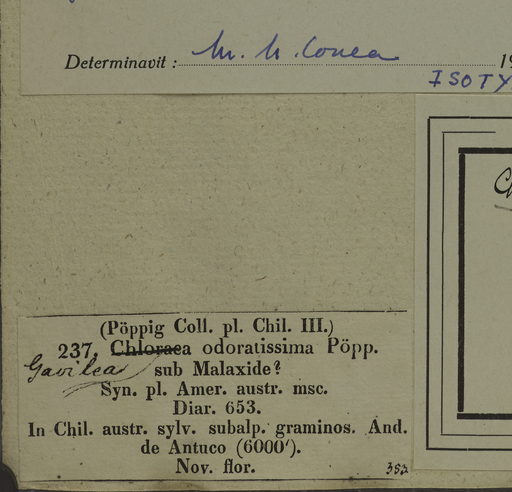 Determinavit : M. N. Correa 19
ISOTY
Ch
(Pöppig Coll. pl. Chil. III.)
237. Chloraea odoratissima Pöpp.
Gavilea sub Malaxide?
Syn. pl. Amer. austr. msc.
Diar. 653.
In Chil. austr. sylv. subalp. graminos. And.
de Antuco (6000').
Nov. flor.
382